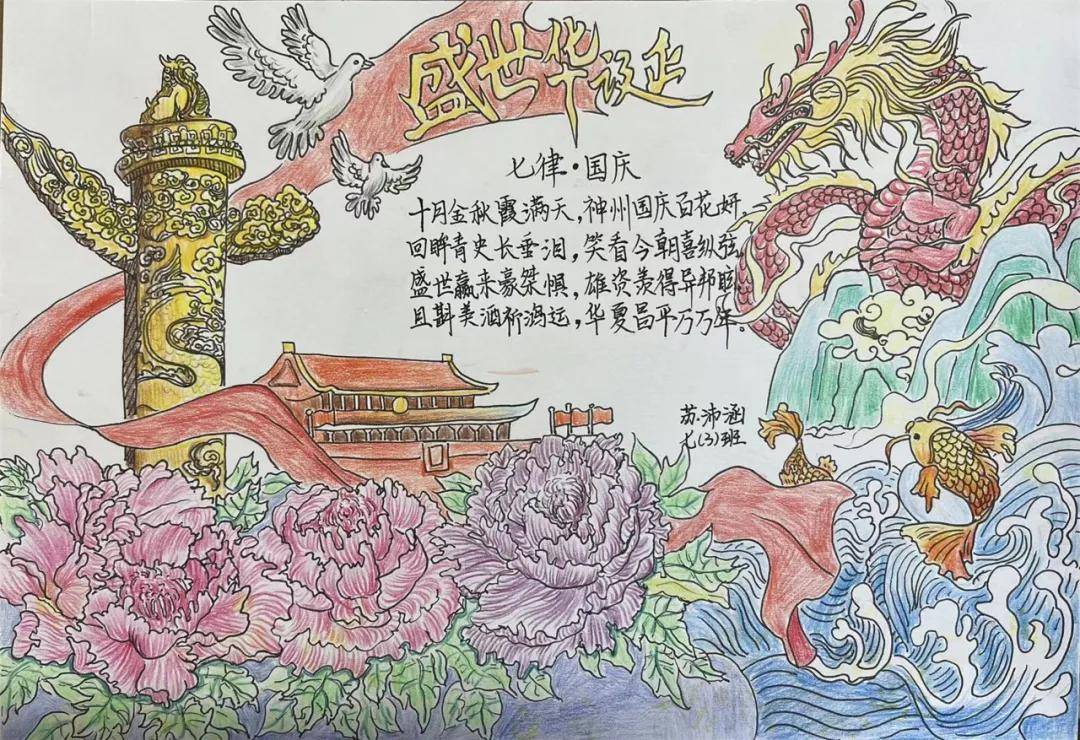 盛世华诞
七律·国庆
十月金秋霞满天，神州国庆百花妍，
回眸青史长垂泪，笑看今朝喜纵弦，
盛世赢来豪桀惧，雄资羡得异邦眩，
且斟美酒祈鸿运，华夏昌平万万年。
苏沛涵
七(3)班